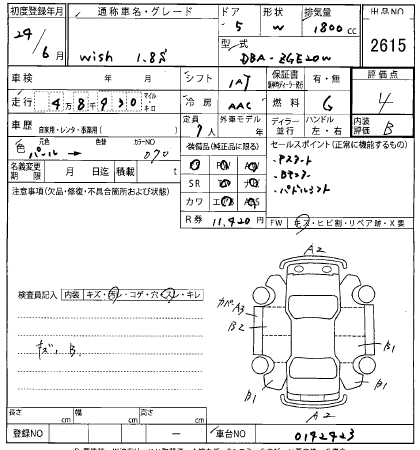 初度登録年月 通称車名・グレード ドア 形状 排気量 出品NO
29/6月 wish 1.8S 5 W 1800cc 2615
型式 DBA-ZGE20W
車検 年 月 シフト IAT 保証書 有・無 評価点
走行 48930 マイル・キロ 冷房 AAC 燃料 G 4
車歴 自家用・レンタ・事業用( ) 定員 7人 外車モデル 年 ディーラー 並行 ハンドル 左・右 内装評価 B
色 パール → 色替 カラーNO 070 装備品(純正品に限る) セールスポイント(正常に機能するもの)
名義変更期限 月 日迄 積載 t
SR
カワ エB ABS
R券 11,420円
注意事項(欠品・修復・不具合箇所および状態)
・パドルシフト
FW キズ・ヒビ割・リペア跡・X要
検査員記入 内装 キズ・汚レ・コゲ・穴・スレ・キレ
キズ、B
A2
カバーA3
B2
B1
B1
B1
A2
長さ cm 幅 cm 高さ cm
登録NO ー 車台NO 0142423